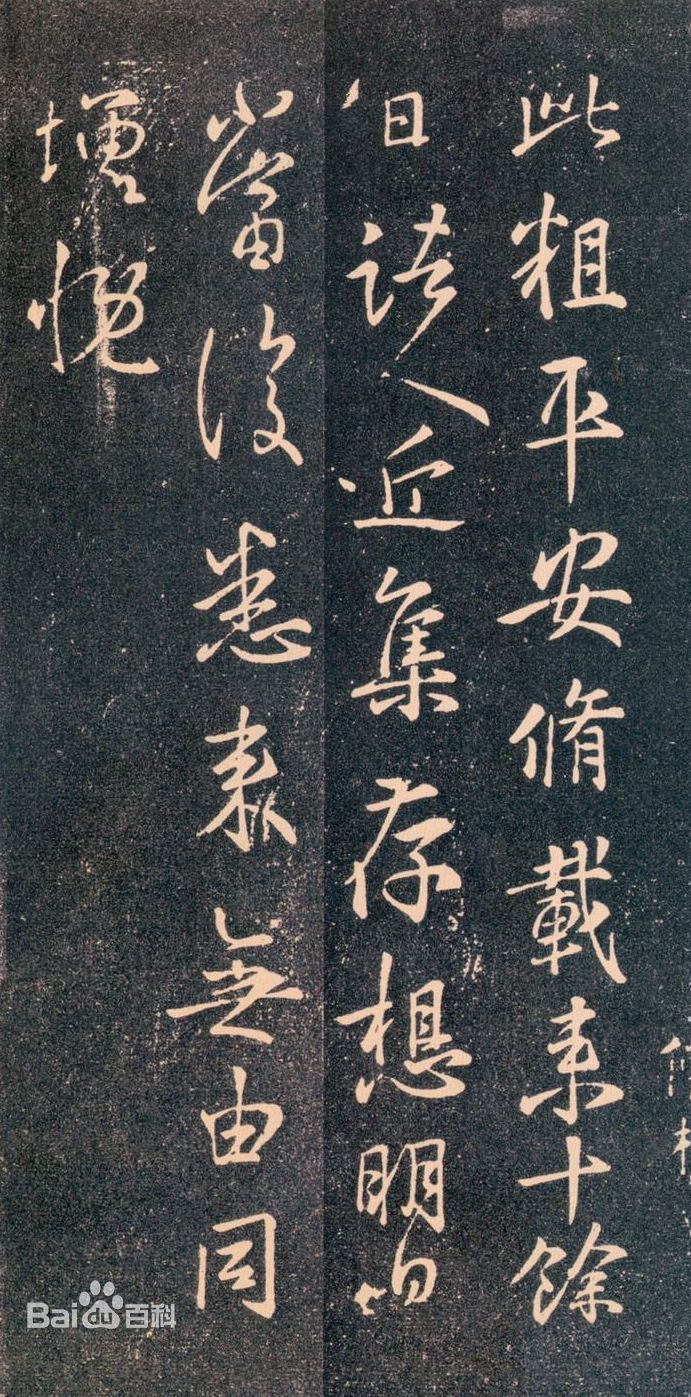 此粗平安脩載来十餘
日諸人近集存想明日
當復悉来無由同
增慨
Baidu百科